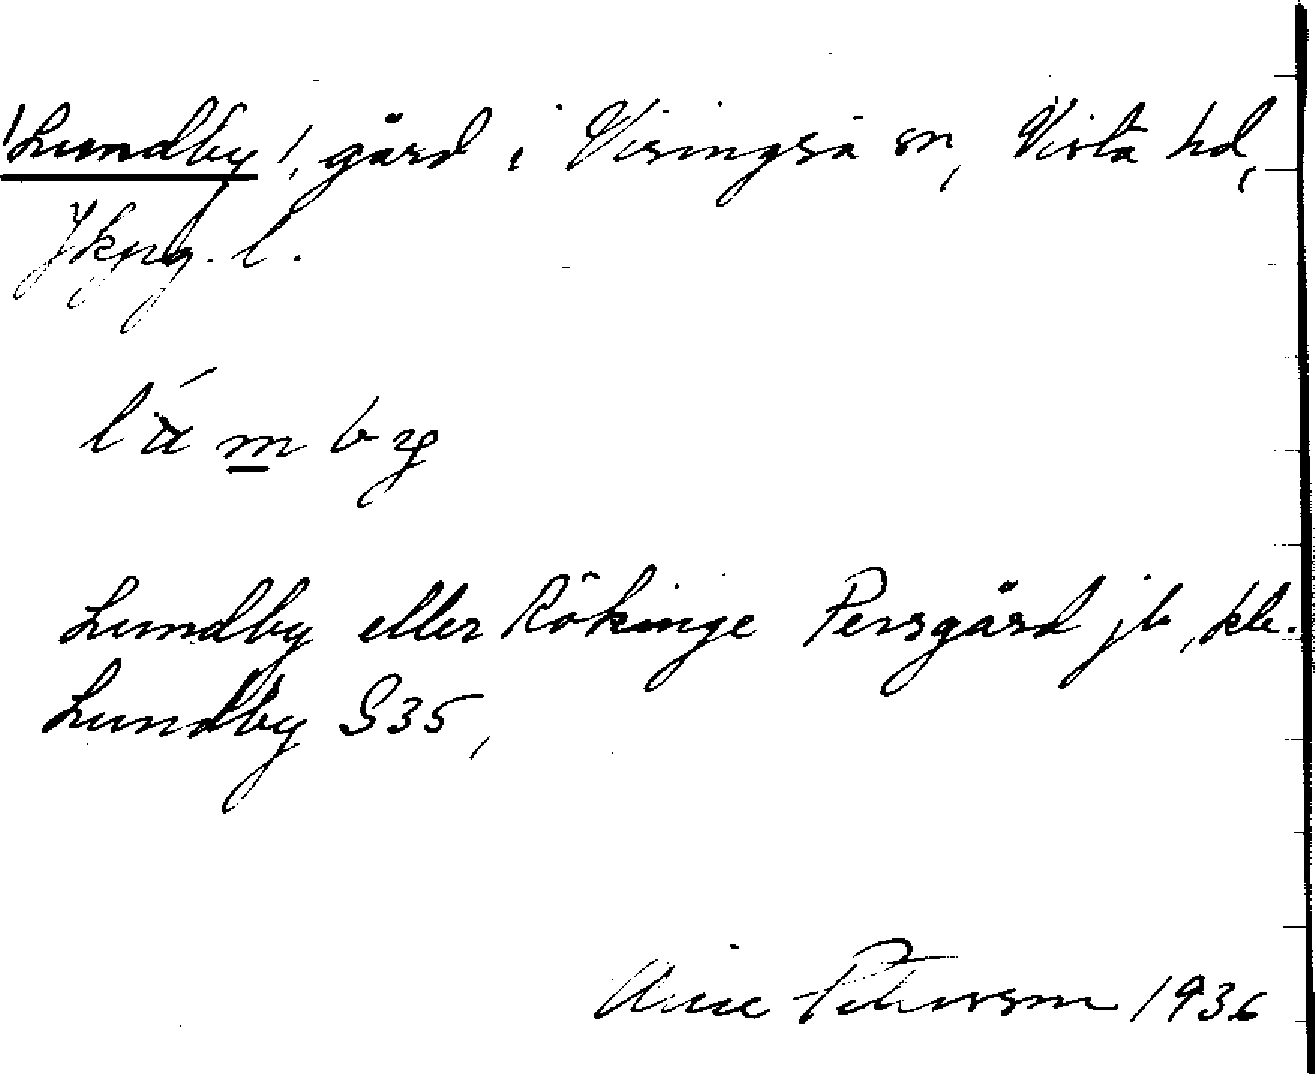 'Lundby', gård i Visingsö sn, Vista hd,
Jkpg. l.
Lundby eller Rökinge Persgård jb, kb.
Lundby S35,
Petersson 1936